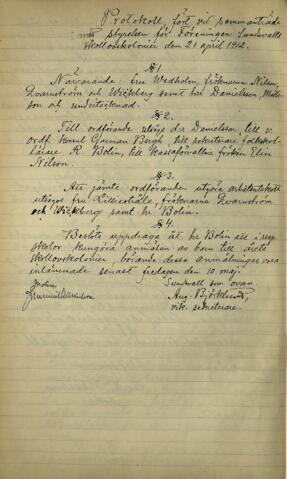 Protokoll, fört vid sammanträde
med styrelsen för Föreningen Sundsvalls
skollovskolonier den 21 april 1912.
§ 1.
Närvarande: fru Wedholm, fröknarna Nilson,
Qvarnström och Wickberg samt hrr Danielsson,
son och undertecknad.
§ 2.
Till ordförande utsågs Danielsson, till v.
ordf. Gunnar Bergh, till sekreterare folkskol-
lärare R. Bolin, till kassaförvaltare fröken Elin
Nilson.
§ 3.
Att jämte ordföranden utgöra arbetsutskott
utsågos fru Lilliestråle, fröknarna Qvarnström
och Wickberg samt hr Bolin.
§ 4.
Beslöts uppdraga åt hr Bolin att i resp.
skolor kungöra anmälan av barn till årets
skollovskolonier, börande dessa anmälningar vara
inlämnade senast fredagen den 10 maj.
Justeras:
Sundsvall som ovan
Aug. Björklund,
vik. sekreterare.